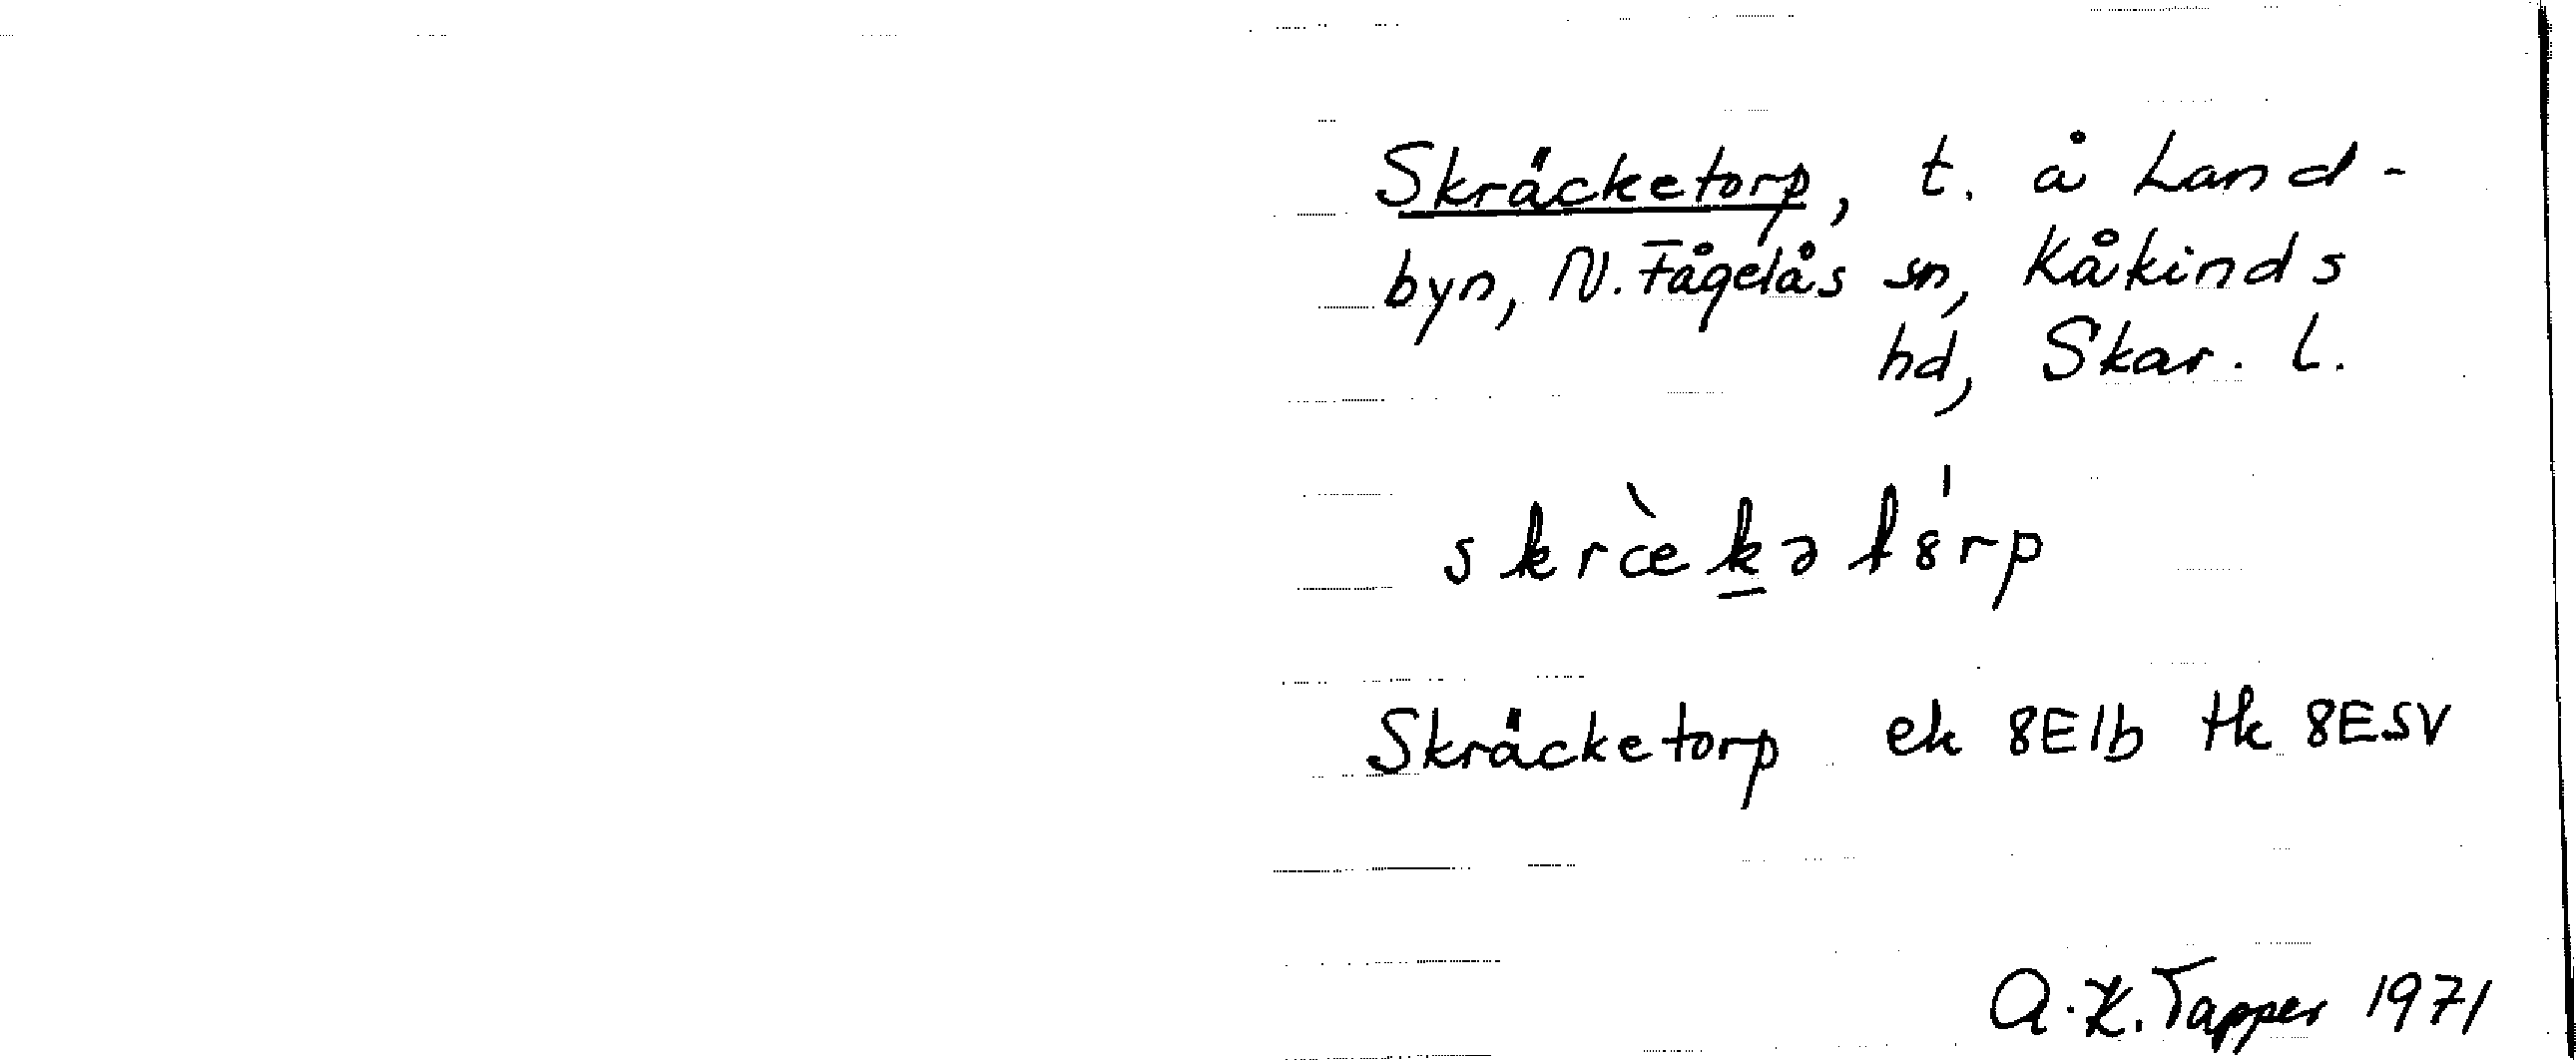 Skräcketorp, t. å Land-
byn, N. Fågelås sn, Kåkinds
hd, Skar. l.
skræ̀kət8́rp
Skräcketorp ek 8E1b tk 8ESV
A.K. Tapper 1971